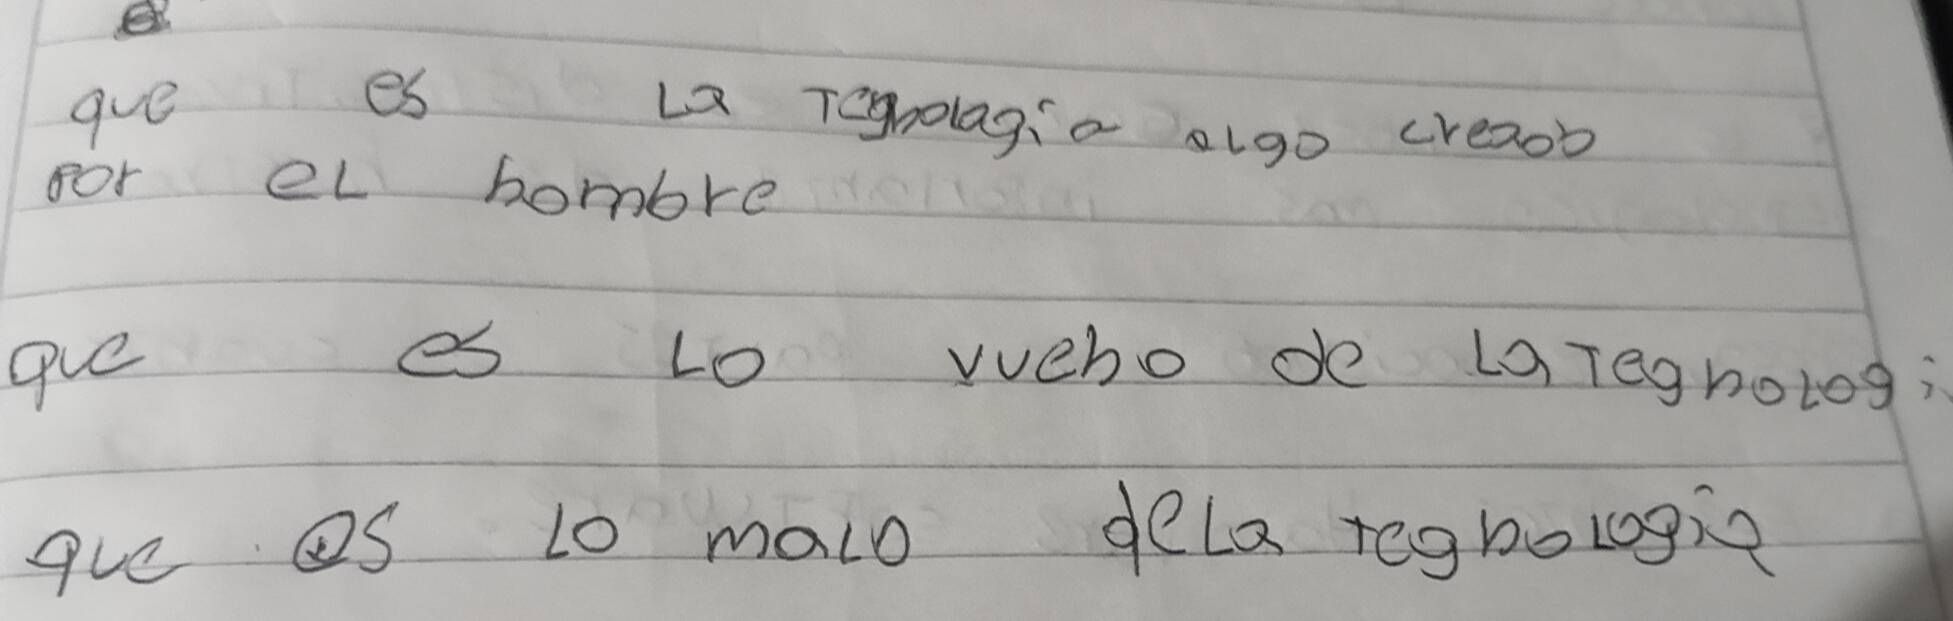 que es La Tegnolagia algo creaob
por el hombre
que es Lo vueho de La Tegnologi
que es Lo malo deLa tegnologia